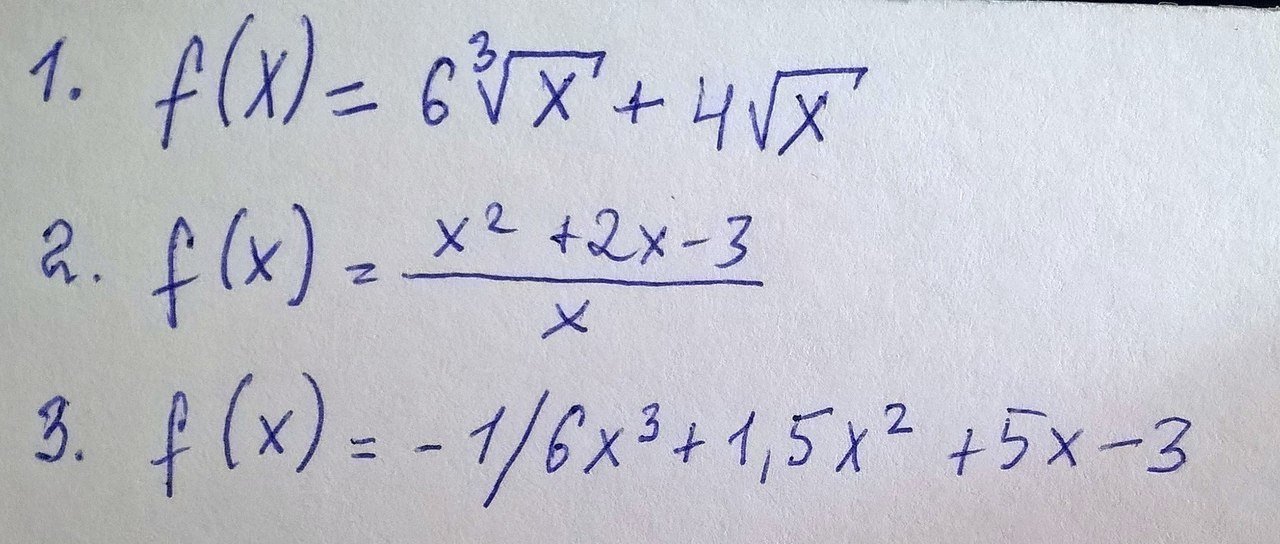 1. f(x) = 6∛x + 4√x
2. f(x) = (x² + 2x - 3)/x
3. f(x) = -1/6x³ + 1,5x² + 5x - 3